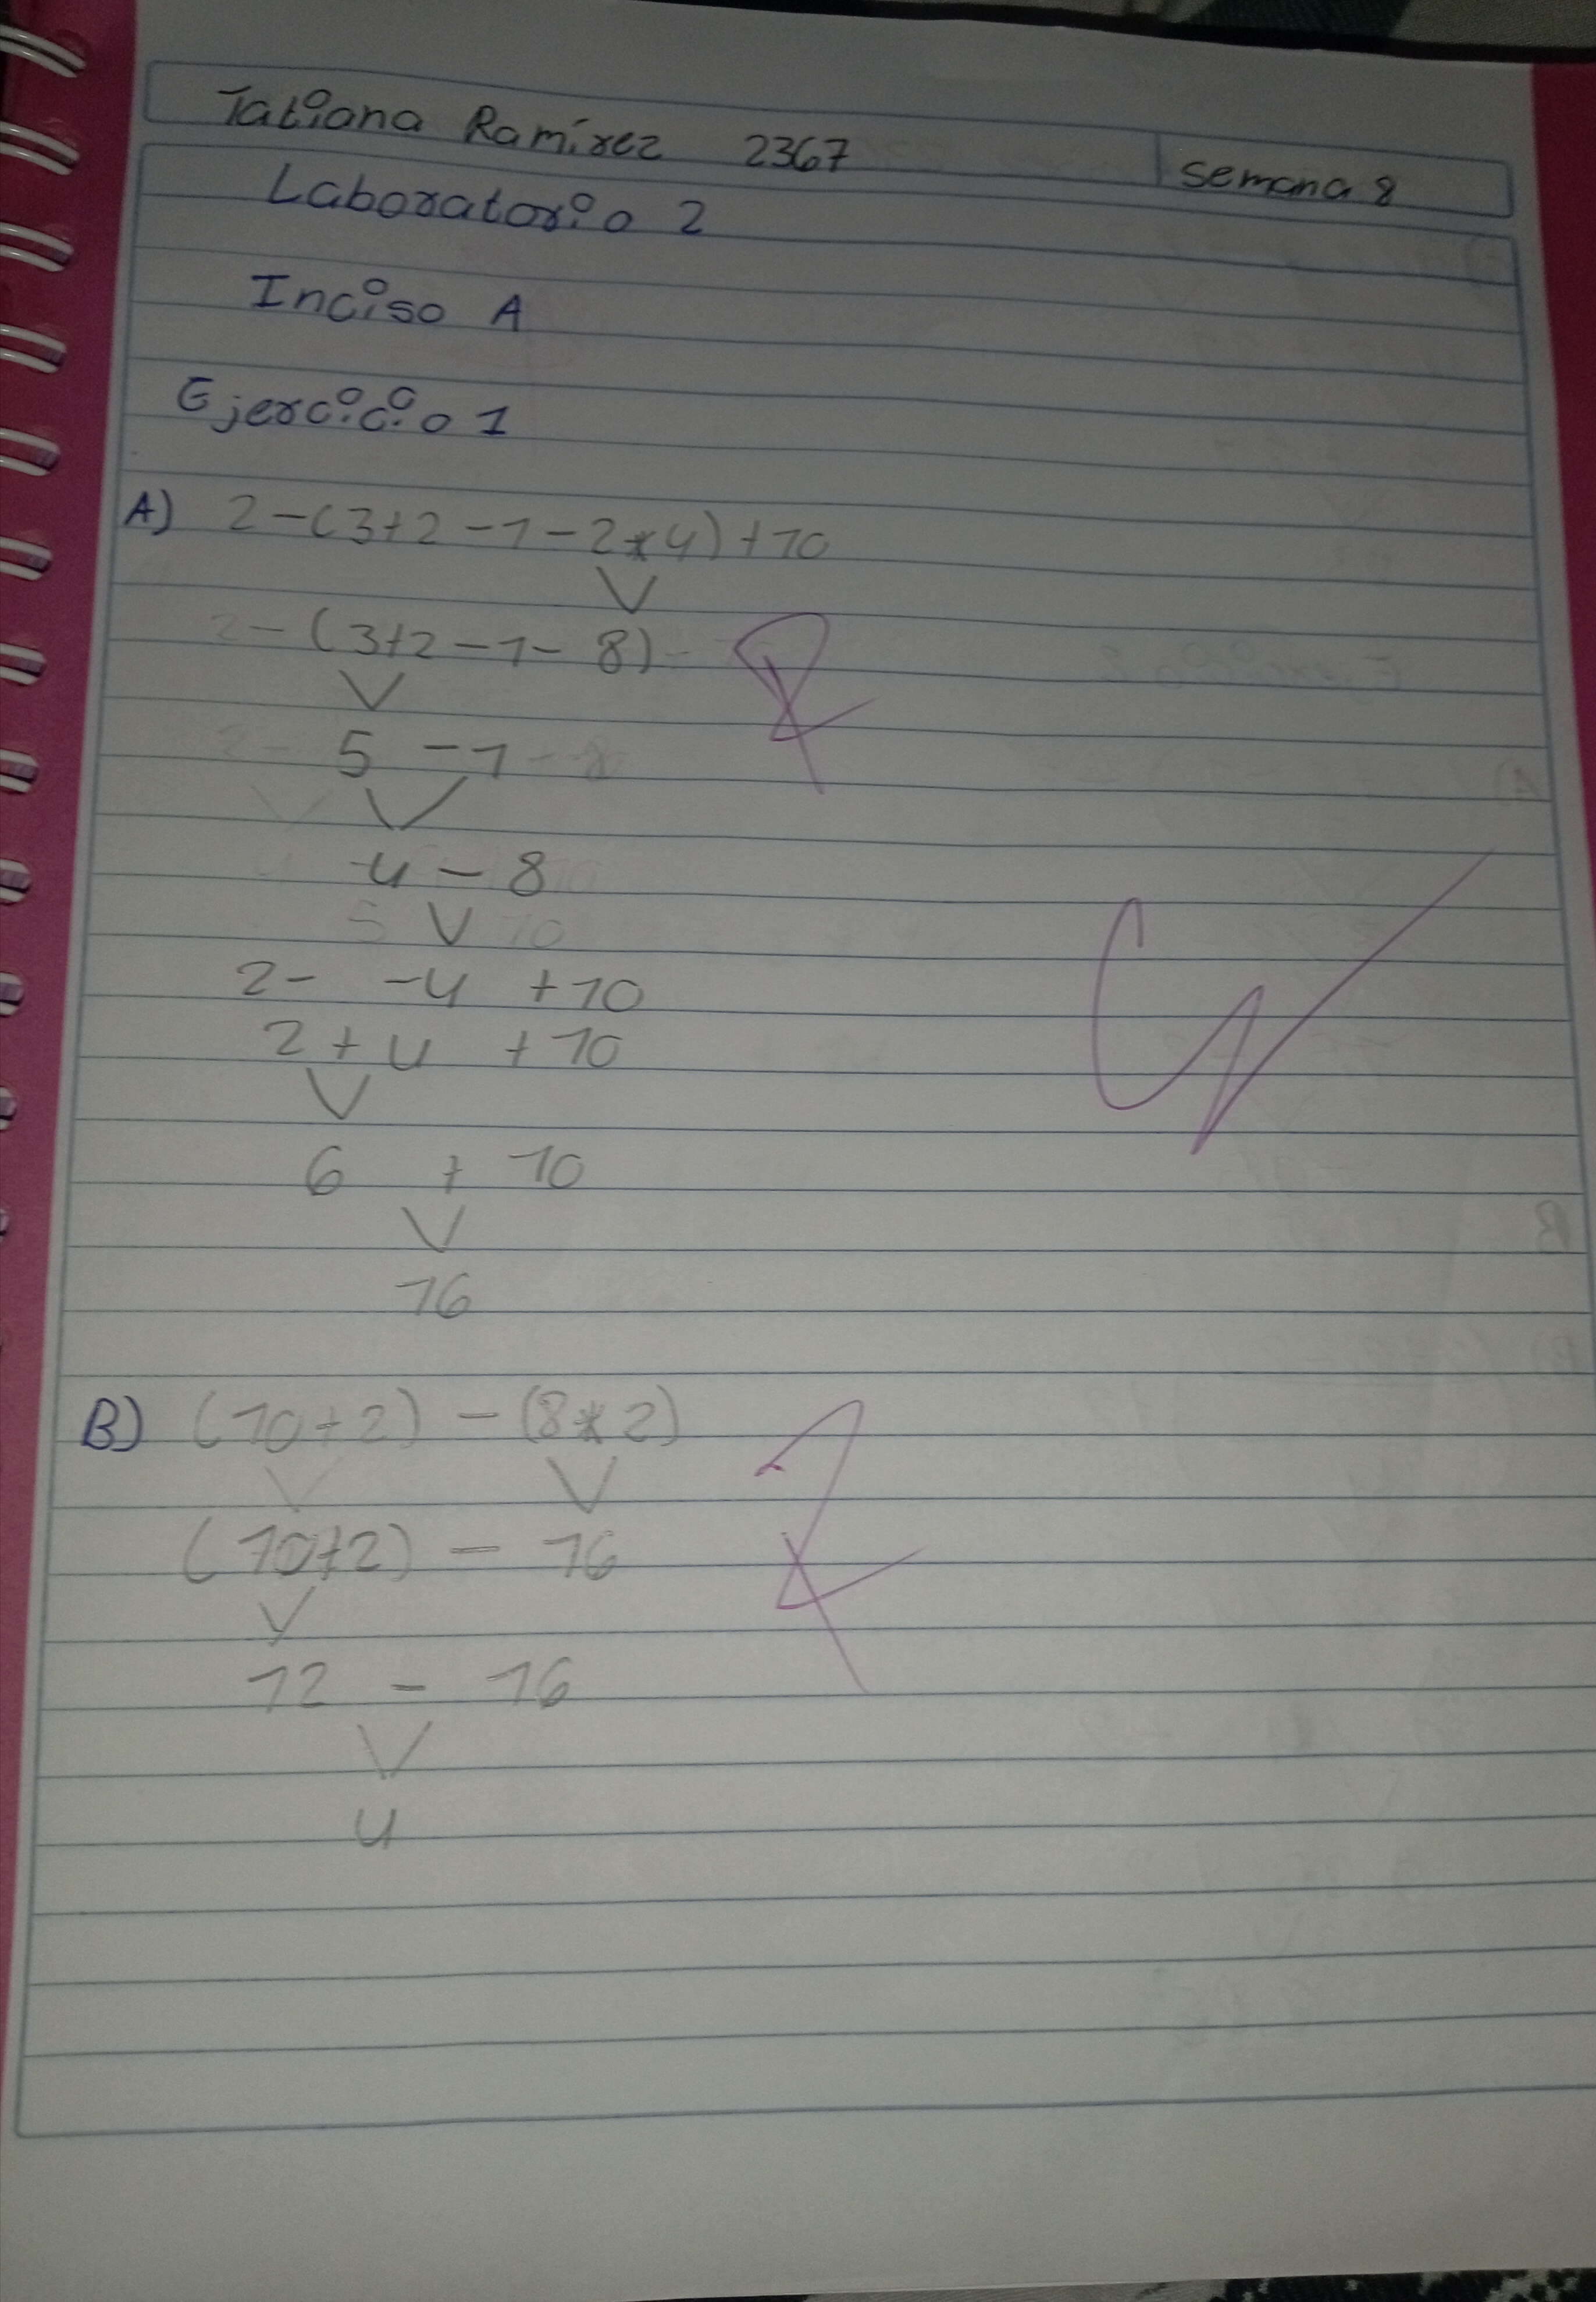 Tatiana Ramírez 2367
Semana 8
Laboratorio 2
Inciso A
Ejercicio 1
A) 2-(3+2-1-2*4)+10
2-(3+2-1-8)
5 -1
4 - 8
2- -4 +10
2 + 4 + 10
6 + 10
16
B) (10+2) - (8*2)
(10+2) - 16
12 - 16
4